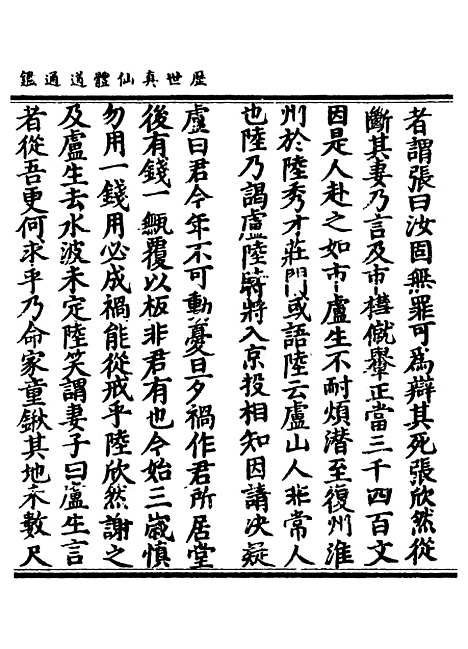 歷世真仙體道通鑑
者謂張曰汝固無罪可為辯其死張欣然從
斷其妻乃言及市槥僦轝正當三千四百文
因是人赴之如市盧生不耐煩潛至復州淮
州於陸秀才莊門或語陸云盧山人非常人
也陸乃謁盧陸時將入京投相知因請決疑
盧曰君今年不可動憂旦夕禍作君所居堂
後有錢一甌覆以板非君有也今始三歲慎
勿用一錢用必成禍能從戒乎陸欣然謝之
及盧生去水波未定陸笑謂妻子曰盧生言
者從吾更何求乎乃命家童鍬其地未數尺